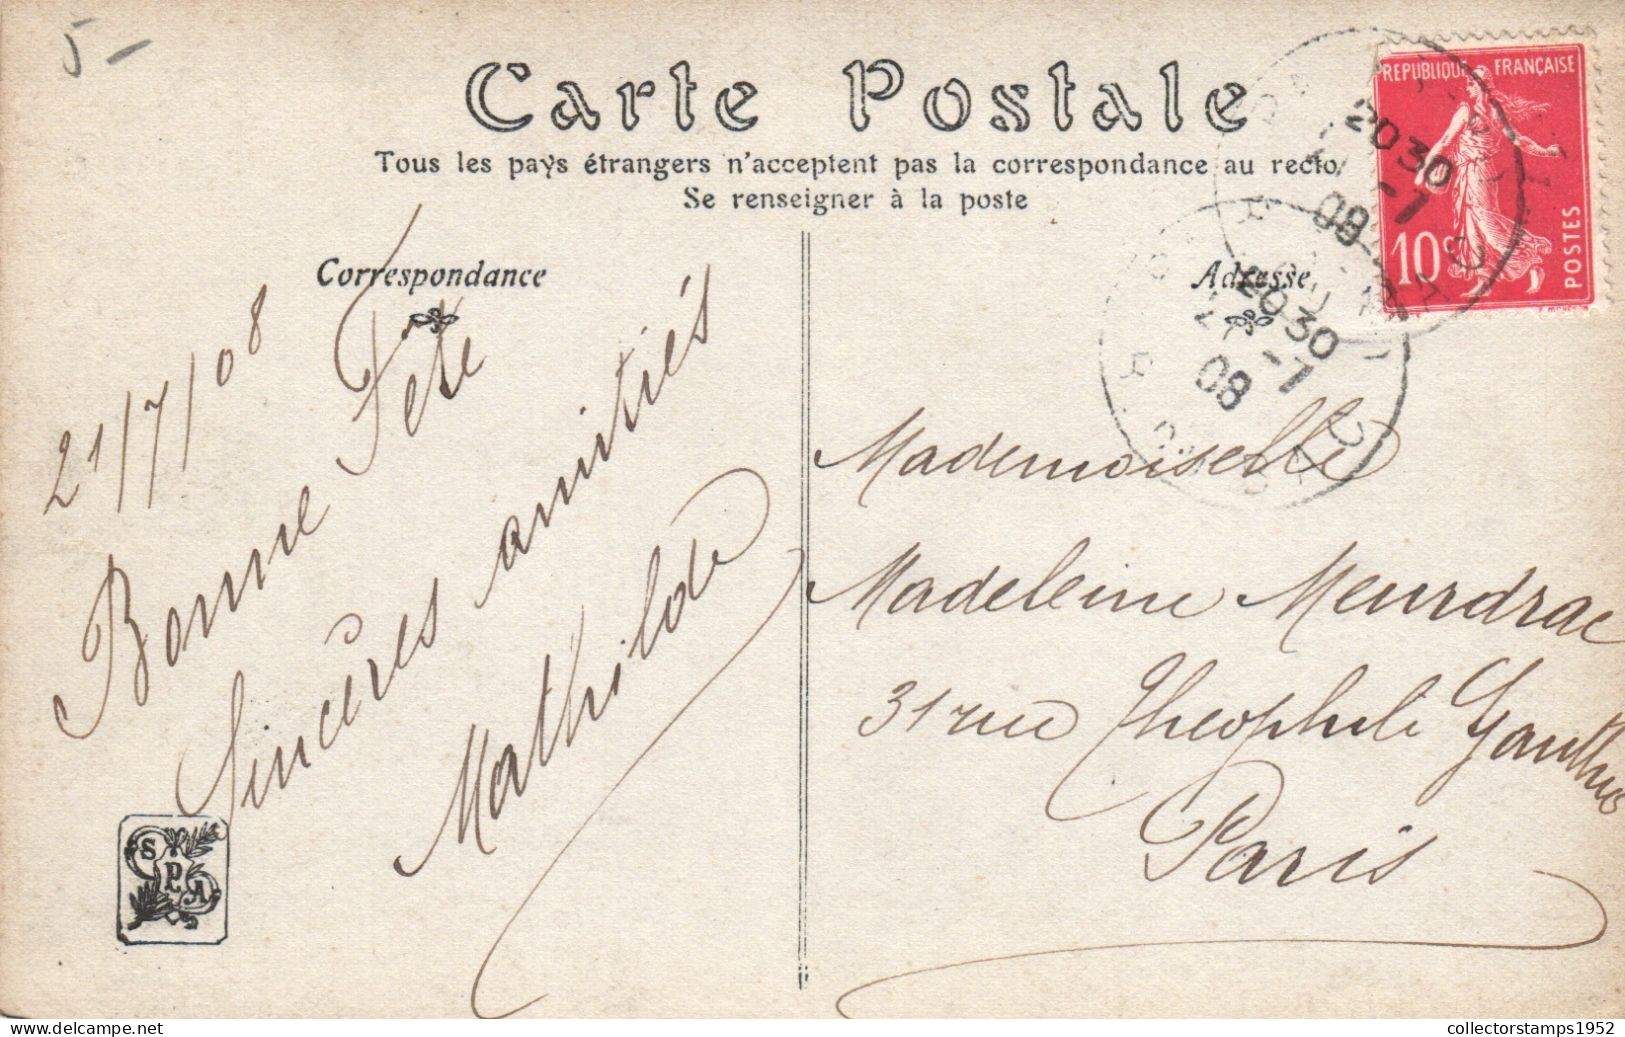 5-
Carte Postale
Tous les pays étrangers n'acceptent pas la correspondance au recto
Se renseigner à la poste
Correspondance
21/7/08
Bonne Fête
Sincères amitiés
Mathilde
S P A
Adresse
RÉPUBLIQUE FRANÇAISE
10c
POSTES
20 30
-7
08
20 30
-7
08
Mademoiselle
Madeleine Meurdrac
31 rue Théophile Gauthier
Paris
delcampe.net
collectorstamps1952